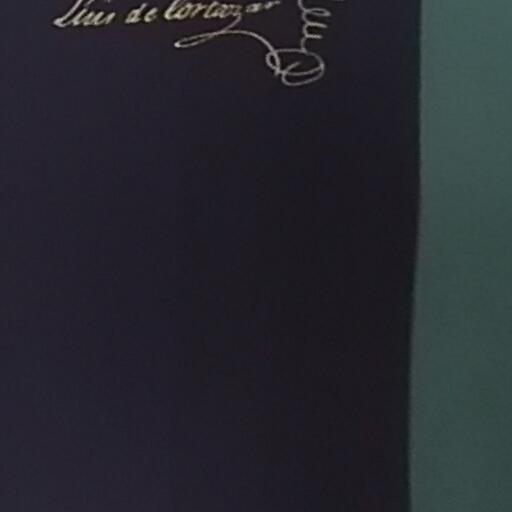 Luis de Cortazar